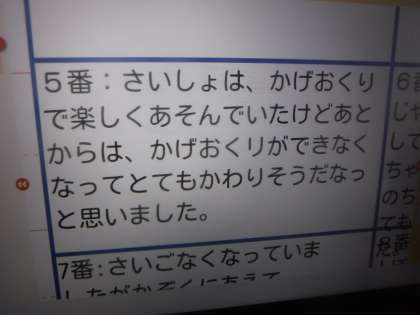 5番：さいしょは、かげおくり
で楽しくあそんでいたけどあと
からは、かげおくりができなく
なってとてもかわりそうだなっ
と思いました。
7番:さいごなくなっていま
したがかぞくにあえて
6番
じゃ
して
ちゃ
のち
ても
8番